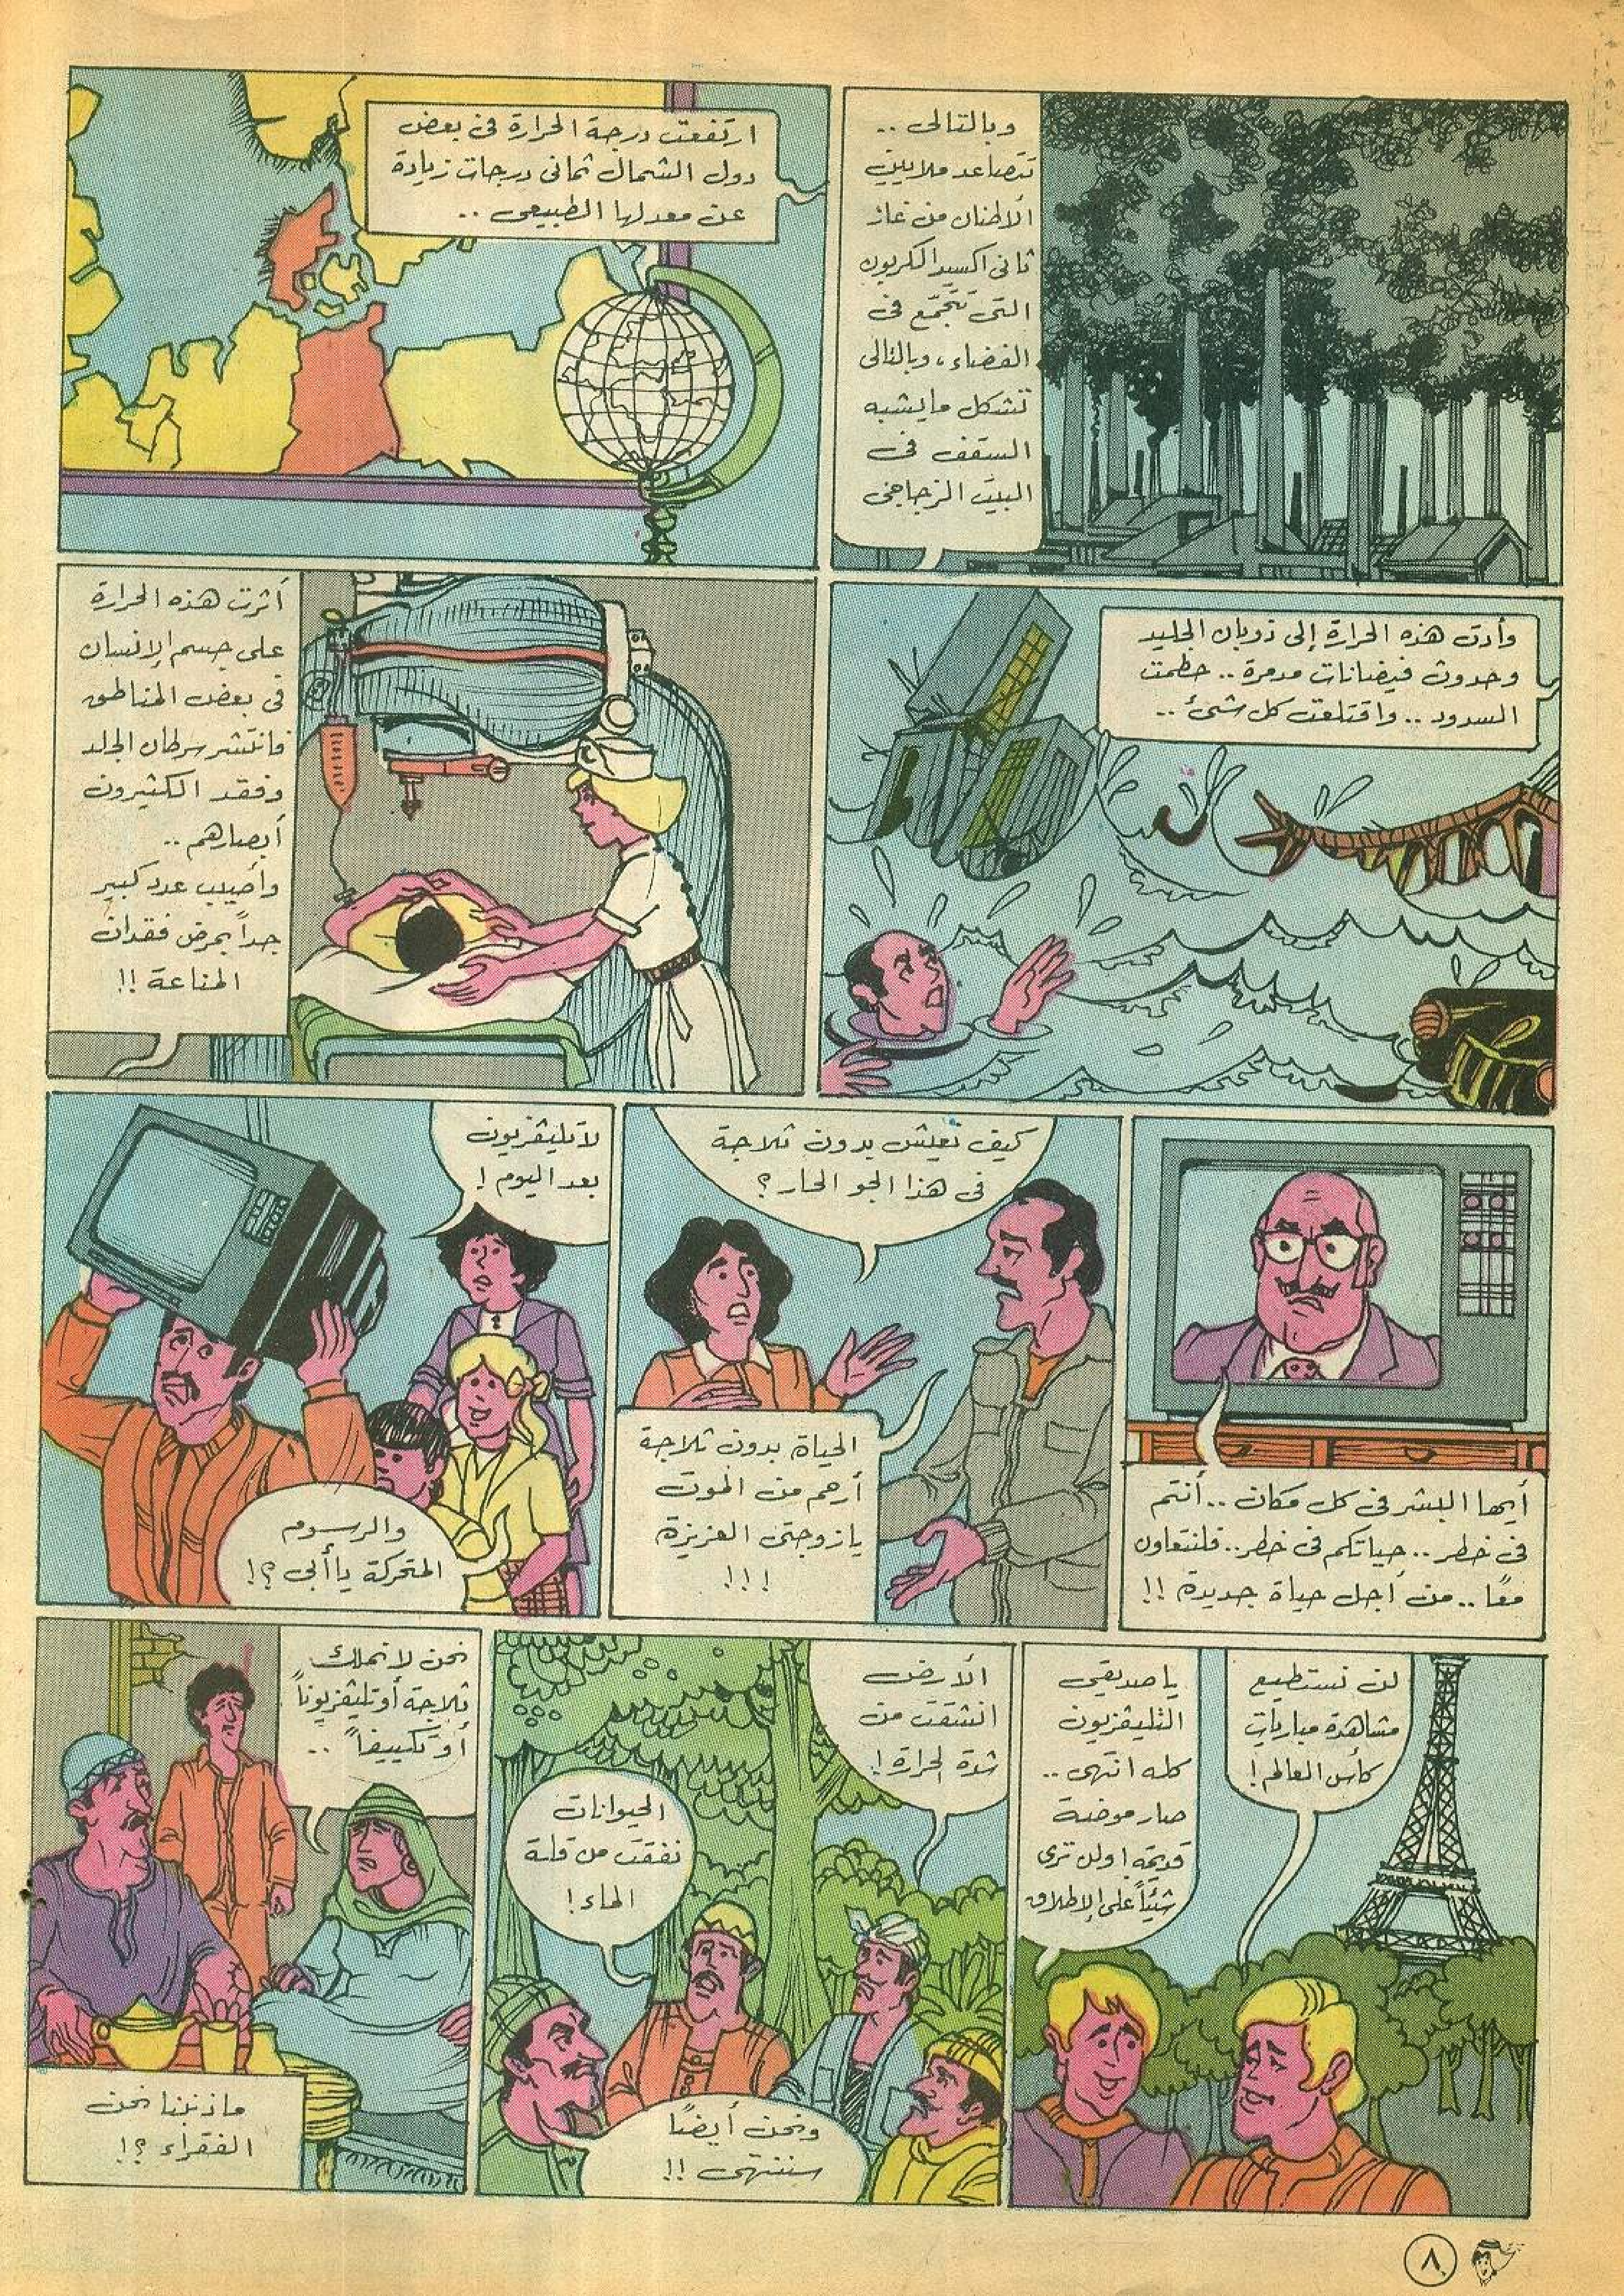 وبالتالى ..
تتصاعد ملايين
الأطنان من غاز
ثانى اكسيد الكربون
التى تتجمّع فى
الفضاء، وبالتالى
تشكل مايشبه
السقف فى
البيت الزجاجى
ارتفعت درجة الحرارة فى بعض
دول الشمال ثمانى درجات زيادة
عن معدلها الطبيعى ..
وأدت هذه الحرارة إلى ذوبان الجليد
وحدوث فيضانات مدمرة .. حطمت
السدود .. واقتلعت كل شئ ..
أثرت هذه الحرارة
على جسم الإنسان
فى بعض المناطق
فانتشر سرطان الجلد
وفقد الكثيرون
أبصارهم ..
وأصيب عدد كبير
جداً بمرض فقدان
المناعة !!
أيها البشر فى كل مكان .. أنتم
فى خطر .. حياتكم فى خطر .. فلنتعاون
معًا .. من أجل حياة جديدة !!
كيف نعيش بدون ثلاجة
فى هذا الجو الحار ؟
الحياة بدون ثلاجة
أرحم من الموت
يازوجتى العزيزة
!!!
لا تليڤزيون
بعد اليوم !
والرسوم
المتحركة يا أبى ؟!
لن نستطيع
مشاهدة مباريات
كأس العالم !
يا صديقى
التليڤزيون
كله انتهى ..
صار موضة
قديمة ! ولن ترى
شيئاً على الإطلاق
الأرض
انشقت من
شدة الحرارة !
الحيوانات
نفقت من قلة
الماء !
ونحن أيضًا
سننتهى !!
نحن لا نملك
ثلاجة أو تليڤزيوناً
أو تكييفاً ..
ما ذنبنا نحن
الفقراء ؟!
٨